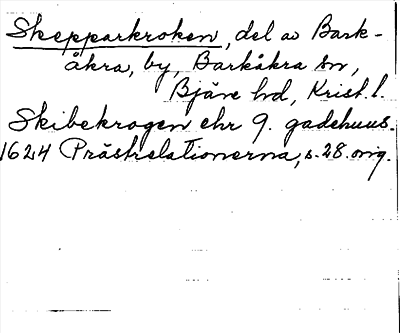 Skepparkroken, del av Bark-
åkra, by, Barkåkra sn,
Bjäre hd, Krist. l.
Skibekrogen ehr 9. gadehuus.
1624 Prästrelationerna, s. 28. orig.